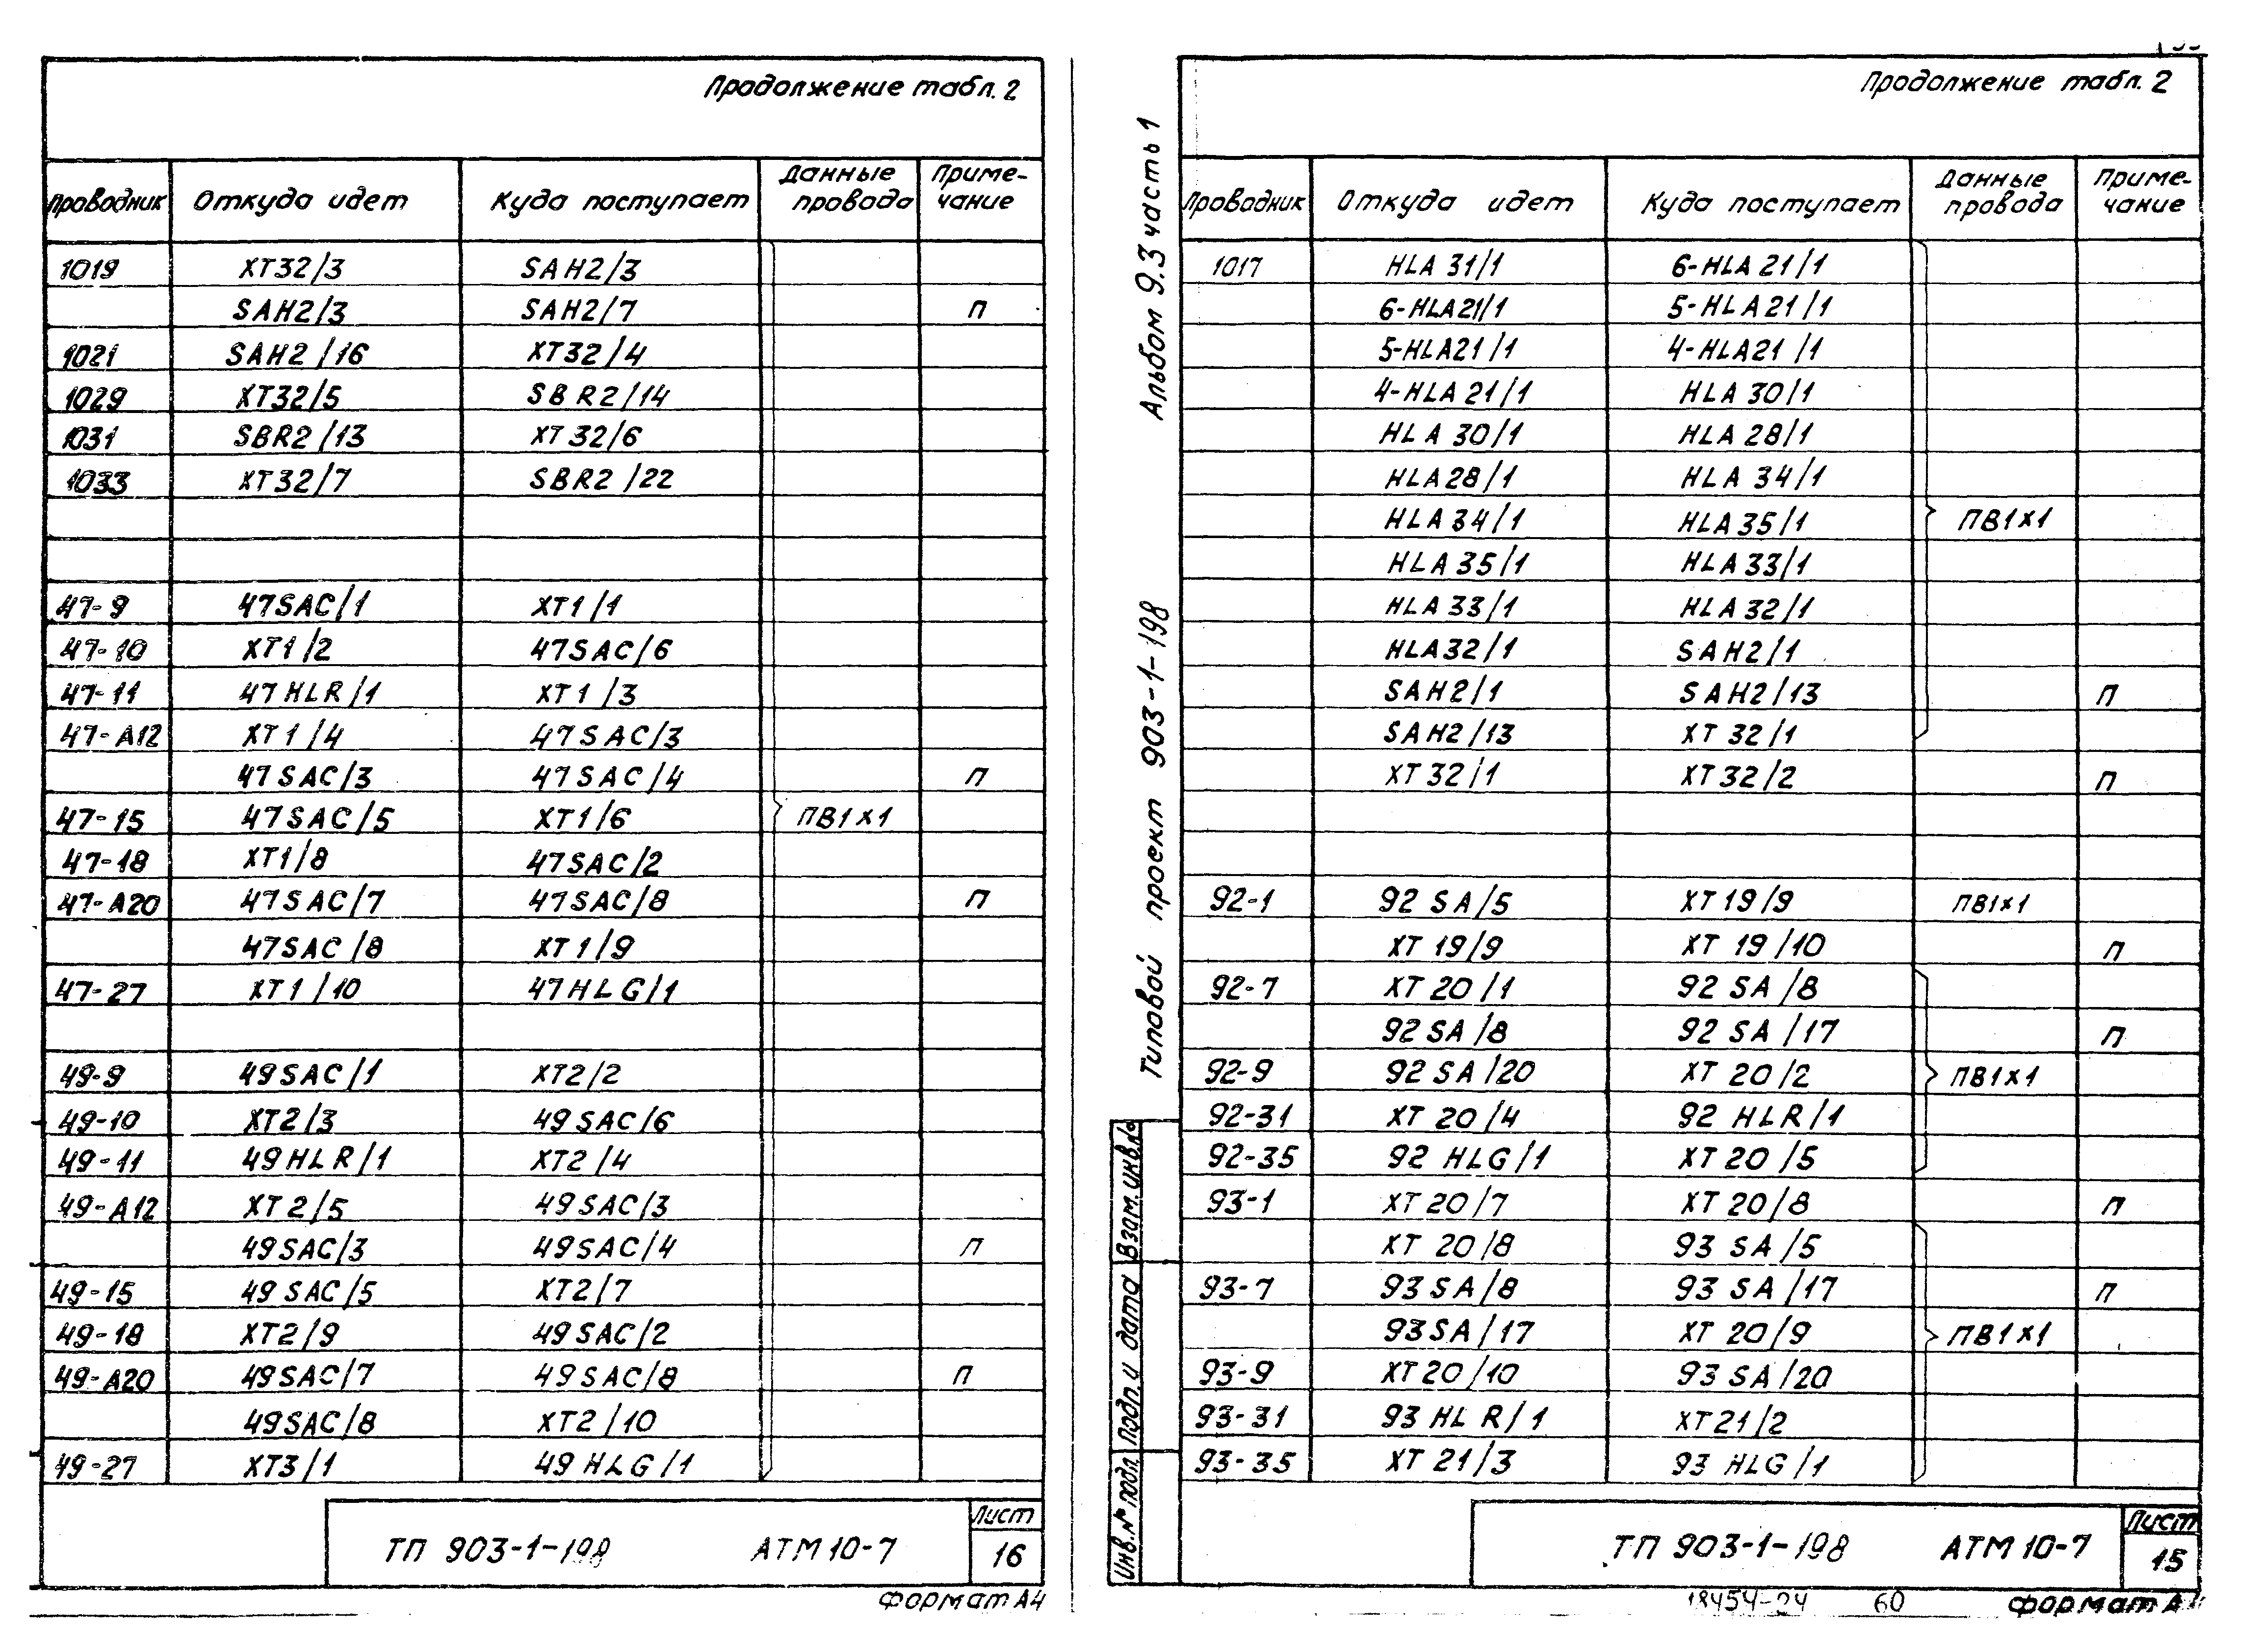 Продолжение табл. 2
Проводник Откуда идет Куда поступает Данные провода Приме-чание
1019 XT32/3 SAH2/3
SAH2/3 SAH2/7 П
1021 SAH2/16 XT32/4
1029 XT32/5 SBR2/14
1031 SBR2/13 XT32/6
1033 XT32/7 SBR2/22
47-9 47SAC/1 XT1/1
47-10 XT1/2 47SAC/6
47-11 47HLR/1 XT1/3
47-A12 XT1/4 47SAC/3
47SAC/3 47SAC/4 П
47-15 47SAC/5 XT1/6 ПВ1х1
47-18 XT1/8 47SAC/2
47-A20 47SAC/7 47SAC/8 П
47SAC/8 XT1/9
47-27 XT1/10 47HLG/1
49-9 49SAC/1 XT2/2
49-10 XT2/3 49SAC/6
49-11 49HLR/1 XT2/4
49-A12 XT2/5 49SAC/3
49SAC/3 49SAC/4 П
49-15 49SAC/5 XT2/7
49-18 XT2/9 49SAC/2
49-A20 49SAC/7 49SAC/8 П
49SAC/8 XT2/10
49-27 XT3/1 49HLG/1
ТП 903-1-198 АТМ10-7 Лист 16
Формат А4
Альбом 9.3 часть 1
Типовой проект 903-1-198
Взам. инв. №
Подп. и дата
Инв. № подл.
Продолжение табл. 2
Проводник Откуда идет Куда поступает Данные провода Приме-чание
1017 HLA31/1 6-HLA21/1
6-HLA21/1 5-HLA21/1
5-HLA21/1 4-HLA21/1
4-HLA21/1 HLA30/1
HLA30/1 HLA28/1
HLA28/1 HLA34/1
HLA34/1 HLA35/1 ПВ1х1
HLA35/1 HLA33/1
HLA33/1 HLA32/1
HLA32/1 SAH2/1
SAH2/1 SAH2/13 П
SAH2/13 XT32/1
XT32/1 XT32/2 П
92-1 92SA/5 XT19/9 ПВ1х1
XT19/9 XT19/10 П
92-7 XT20/1 92SA/8
92SA/8 92SA/17 П
92-9 92SA/20 XT20/2 ПВ1х1
92-31 XT20/4 92HLR/1
92-35 92HLG/1 XT20/5
93-1 XT20/7 XT20/8 П
XT20/8 93SA/5
93-7 93SA/8 93SA/17 П
93SA/17 XT20/9 ПВ1х1
93-9 XT20/10 93SA/20
93-31 93HLR/1 XT21/2
93-35 XT21/3 93HLG/1
ТП 903-1-198 АТМ10-7 Лист 15
18454-24 60 Формат А4